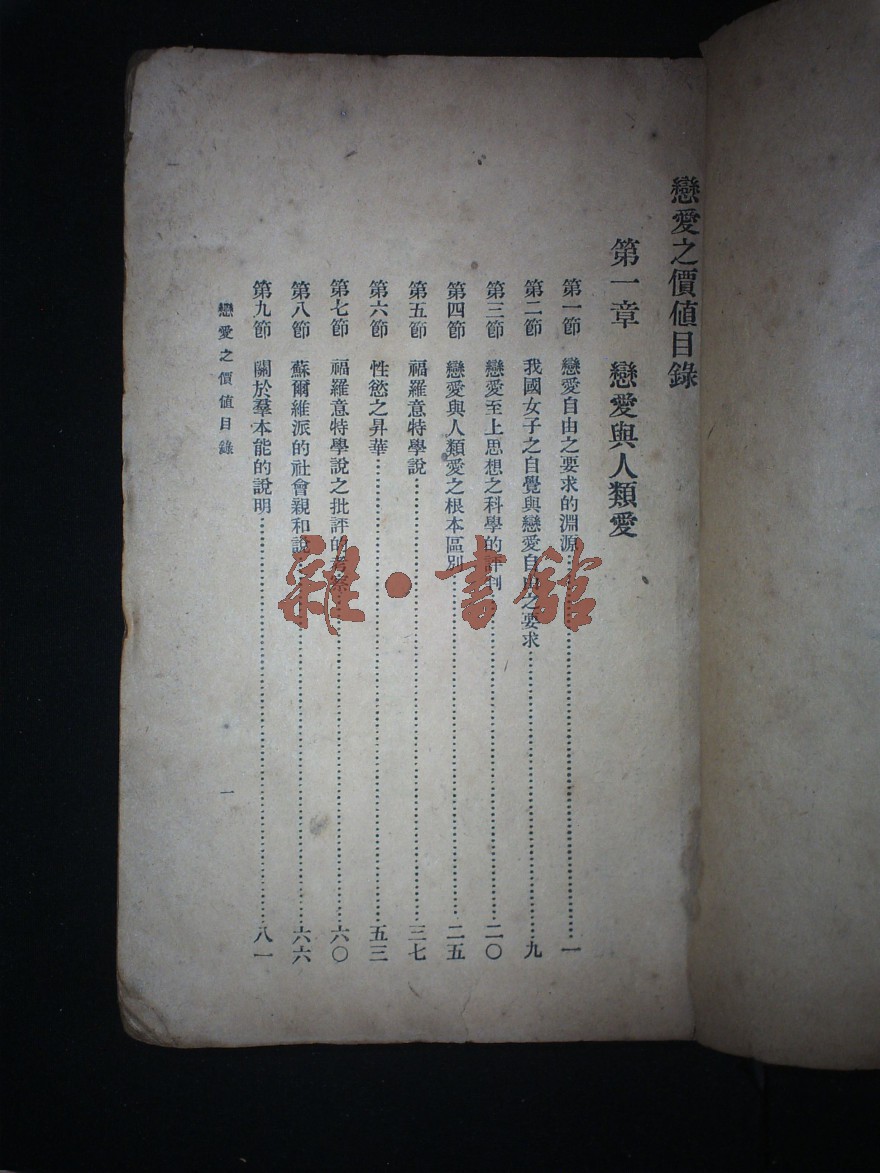 戀愛之價值目錄
第一章　戀愛與人類愛
第一節　戀愛自由之要求的淵源……一
第二節　我國女子之自覺與戀愛自由之要求……九
第三節　戀愛至上思想之科學的評判……二〇
第四節　戀愛與人類愛之根本區別……二五
第五節　福羅意特學說……三七
第六節　性慾之昇華……五三
第七節　福羅意特學說之批評的考察……六〇
第八節　蘇爾維派的社會親和說……六六
第九節　關於羣本能的說明……八一
戀愛之價值目錄　一
雜·書館